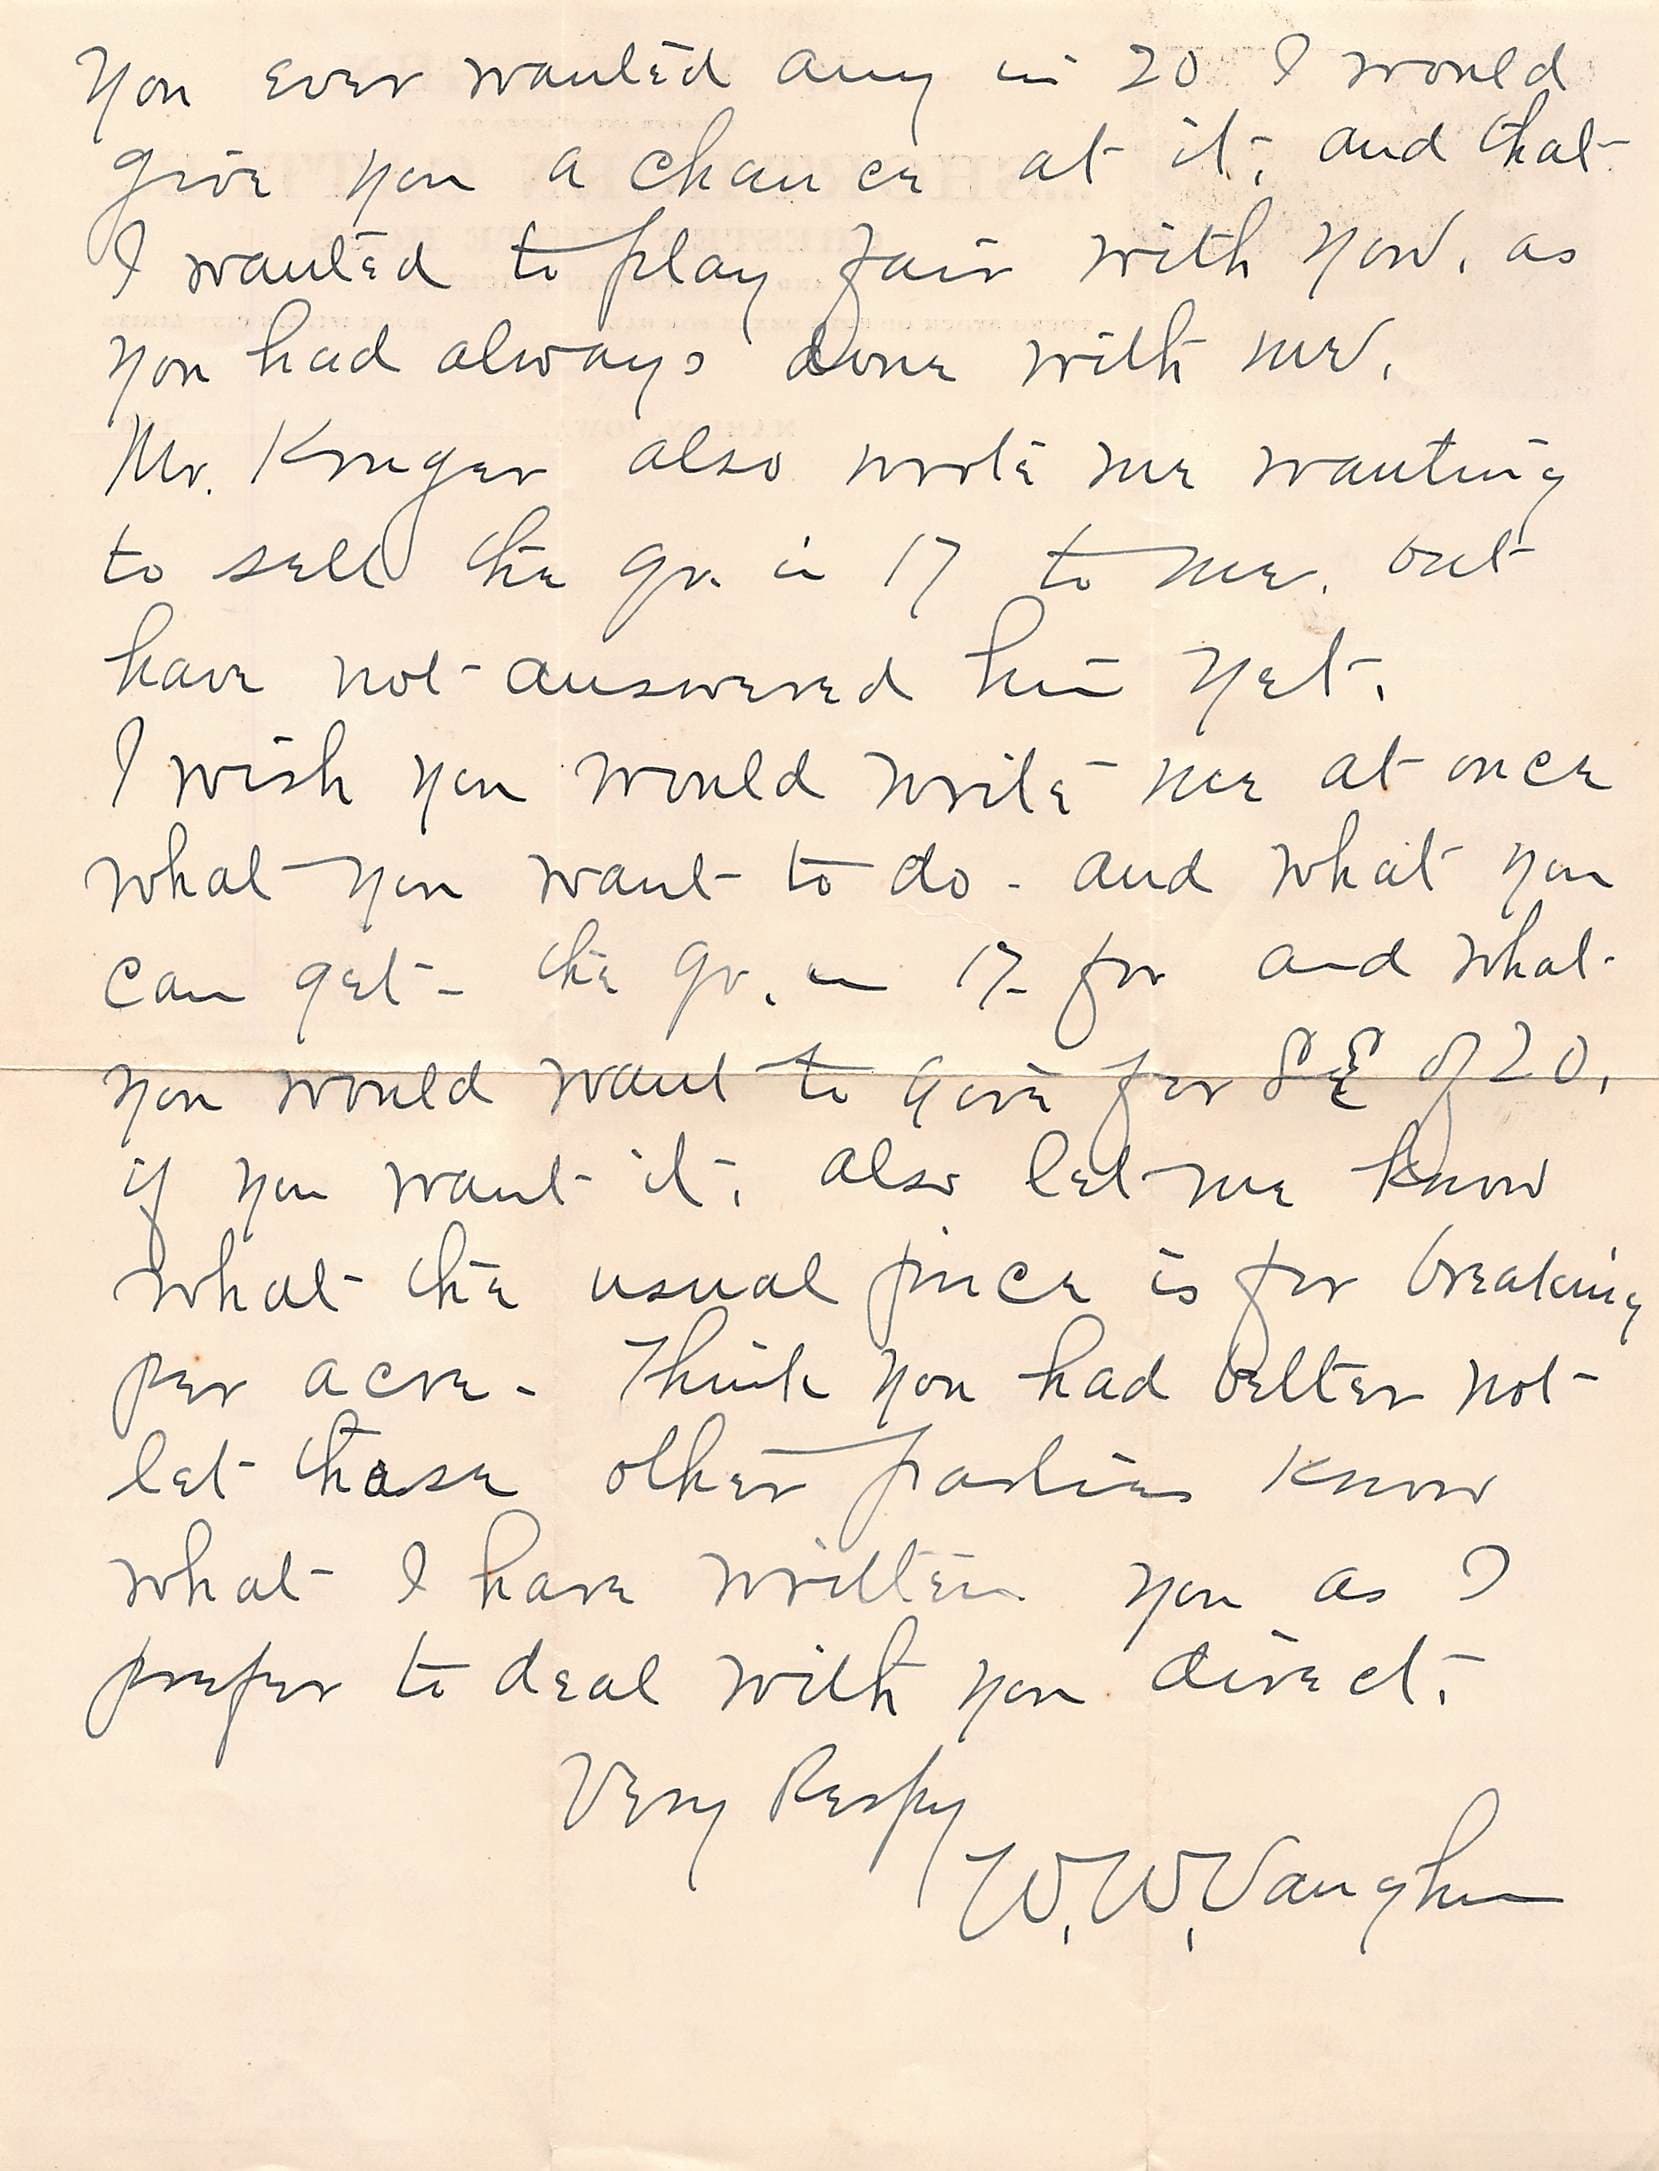 you ever wanted any in 20 I would
give you a chance at it, and that
I wanted to play fair with you, as
you had always done with me.
Mr. Kruger also wrote me wanting
to sell the qr. in 17 to me, but
have not answered him yet.
I wish you would write me at once
what you want to do - and what you
can get - the qr. in 17 - for and what
you would want to give for S E of 20,
if you want it, also let me know
what the usual price is for breaking
per acre - Think you had better not
let these other parties know
what I have written you as I
prefer to deal with you direct.
Very Respy
W. W. Vaughn